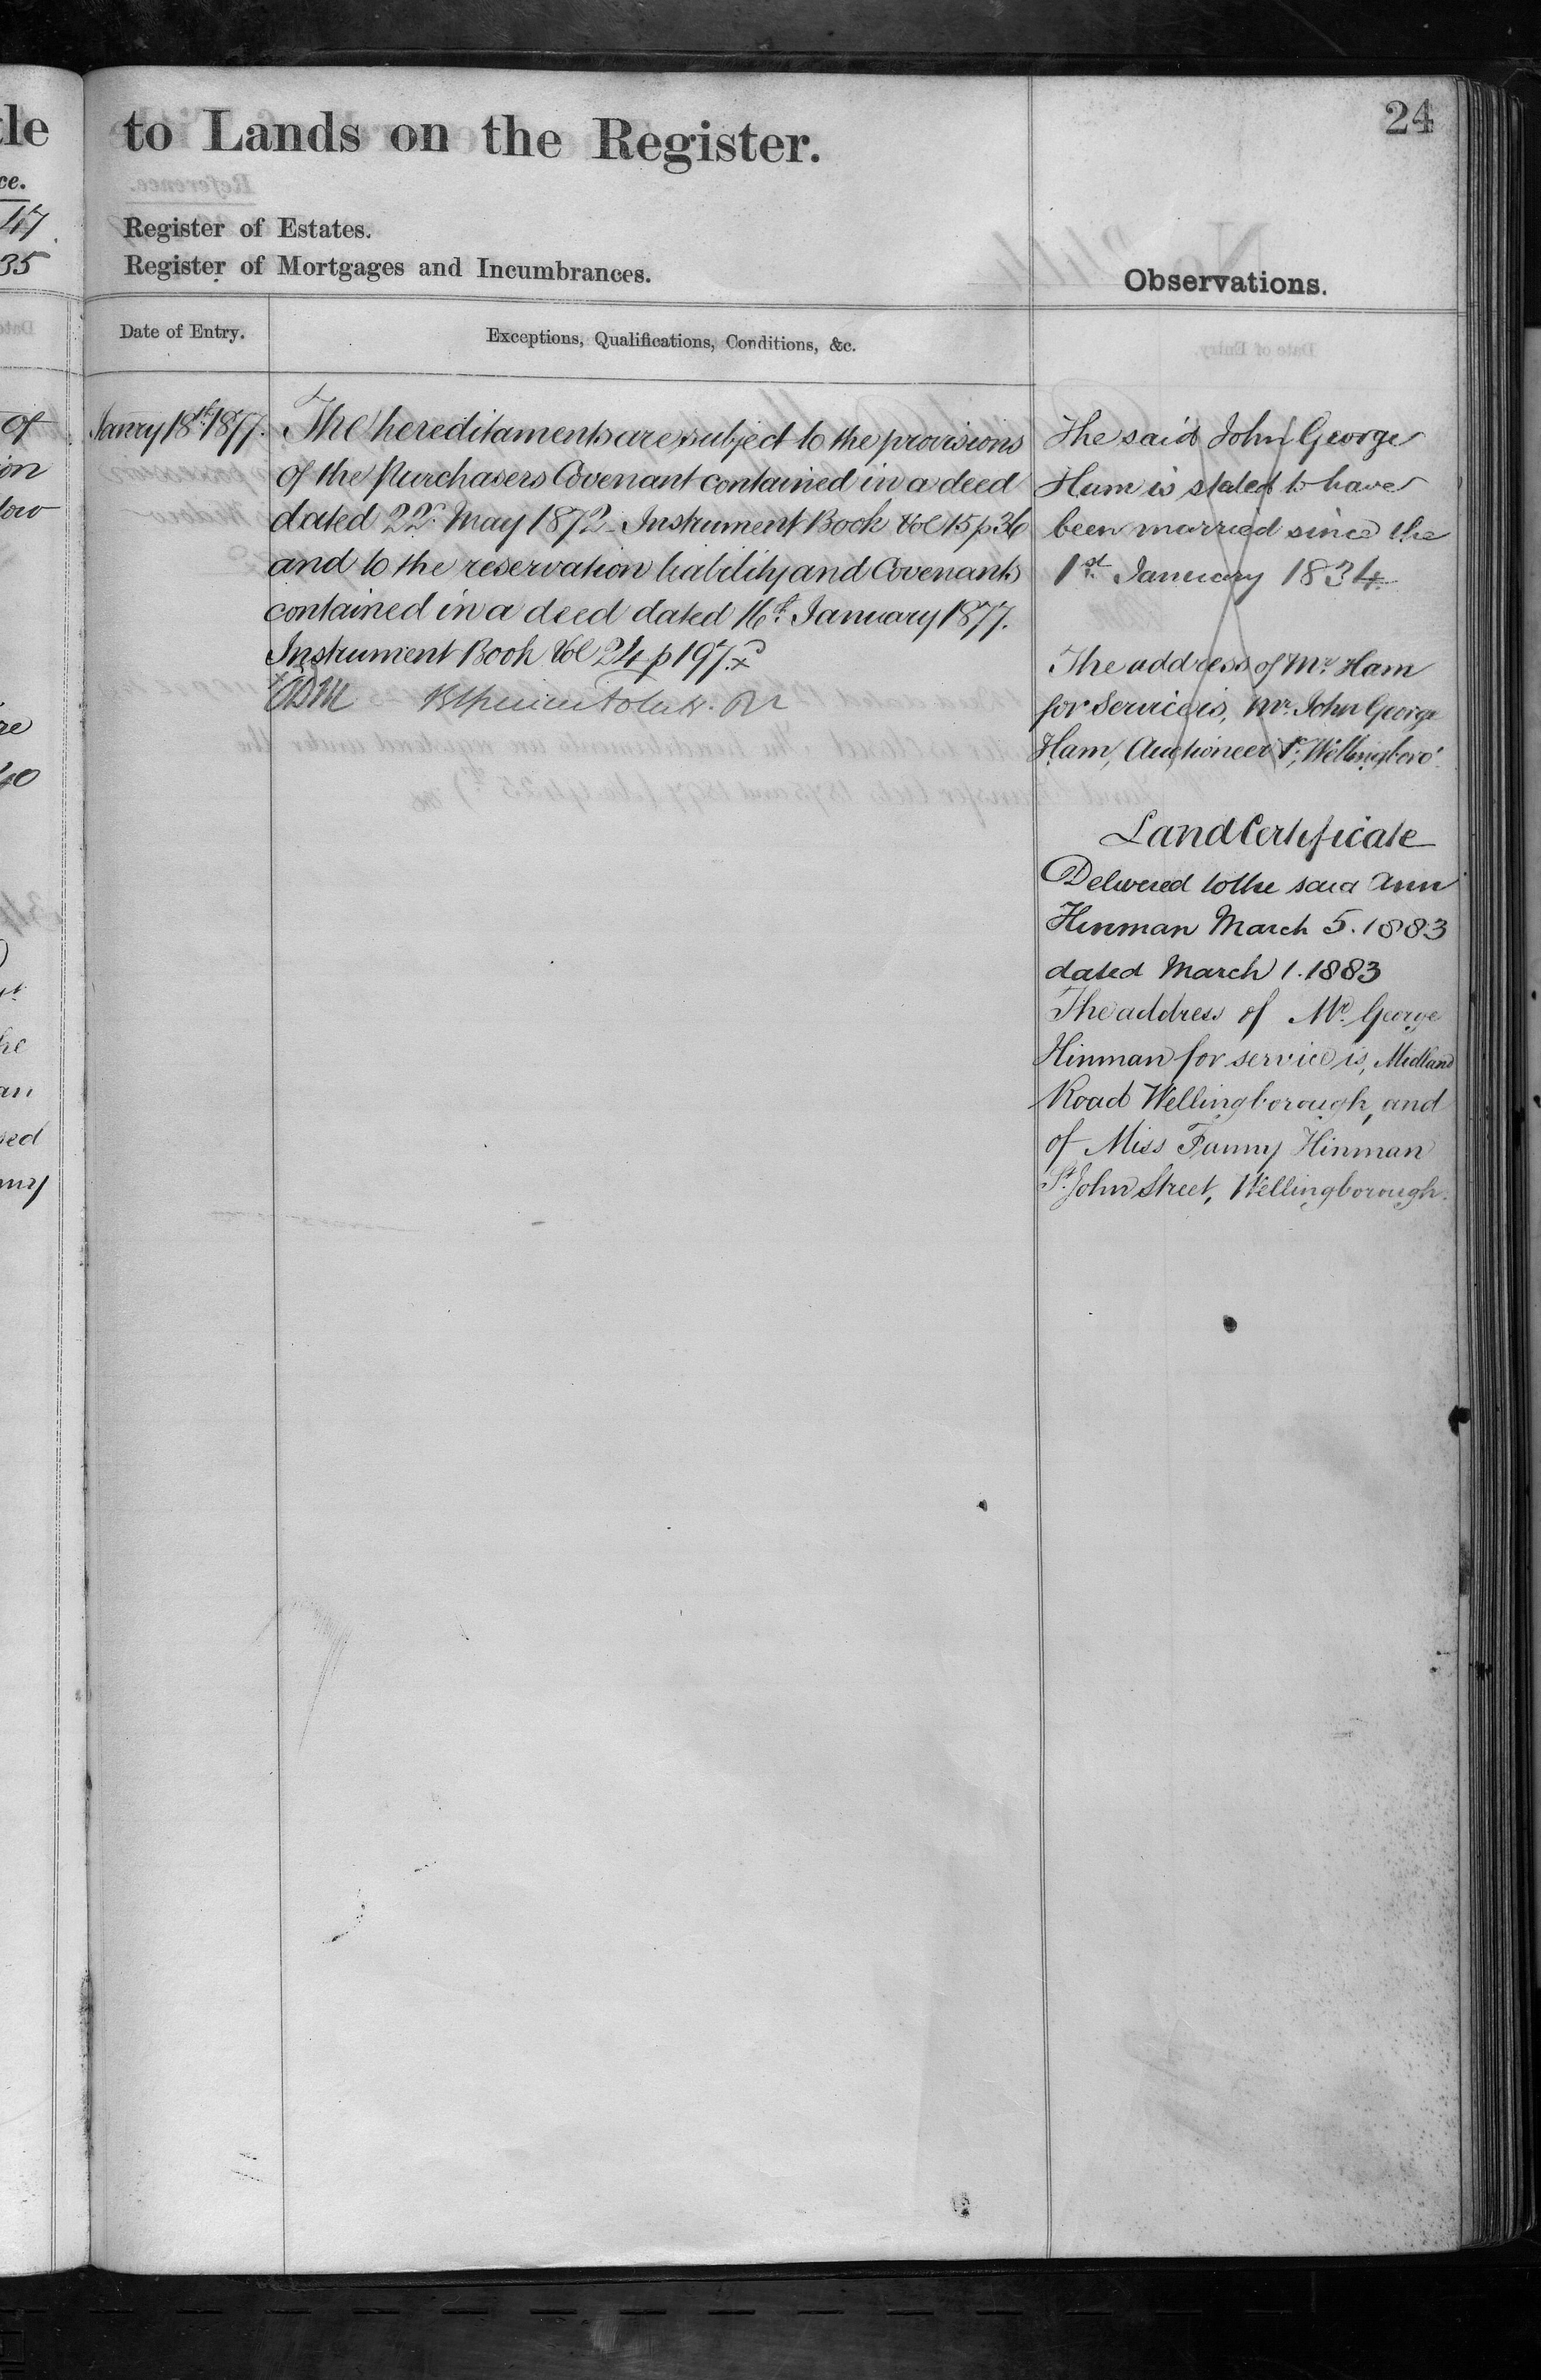 24
to Lands on the Register.
Register of Estates.
Register of Mortgages and Incumbrances.
Observations.
Date of Entry.
Exceptions, Qualifications, Conditions, &c.
Janry 18th 1877.
The hereditaments are subject to the provisions
of the Purchasers Covenant contained in a deed
dated 22d May 1872 Instrument Book Vol 15 p 36
and to the reservation liability and Covenants
contained in a deed dated 16th January 1877.
Instrument Book Vol 24 p 197.
The said John George
Ham is stated to have
been married since the
1st January 1834.
The address of Mr Ham
for Service is, Mr John George
Ham, Auctioneer &c, Wellingboro'
Land Certificate
Delivered to the said Ann
Hinman March 5. 1883
dated March 1. 1883
The address of Mr. George
Hinman for service is, Midland
Road Wellingborough, and
of Miss Fanny Hinman
St. John Street, Wellingborough.